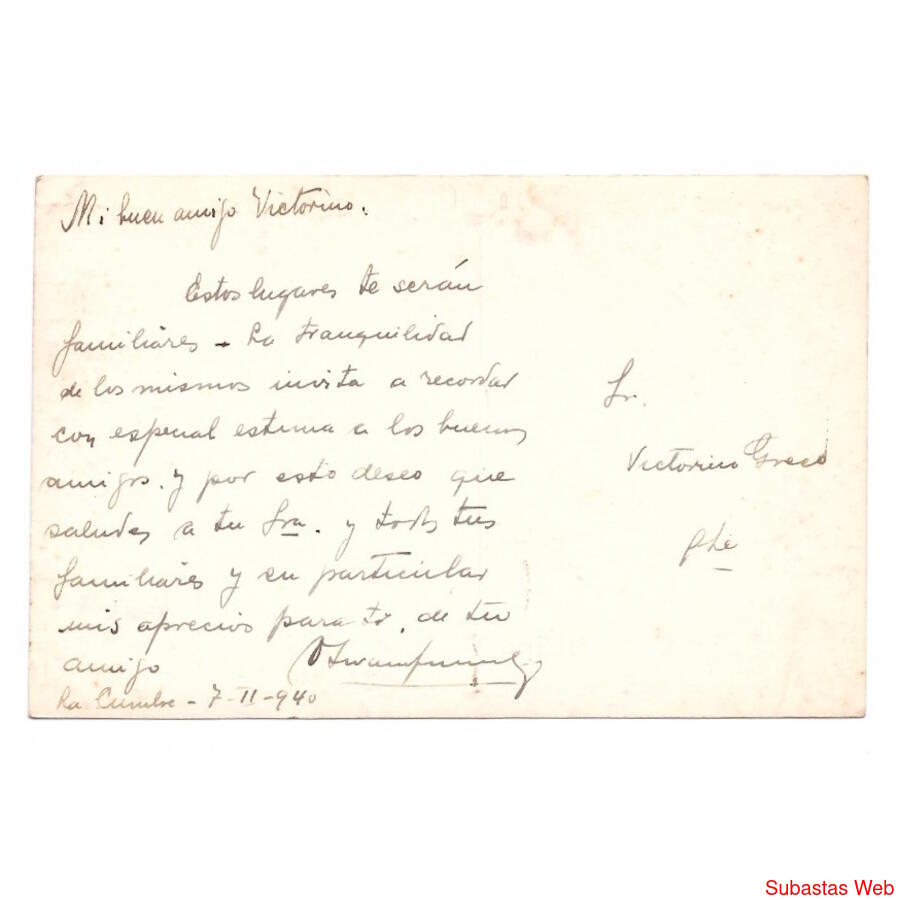 Mi buen amigo Victorino.
Estos lugares te serán
familiares - La tranquilidad
de los mismos invita a recordar
con especial estima a los buenos
amigos. y por esto deseo que
saludes a tu Sra. y todos tus
familiares y en particular
mis aprecios para ti, de tu
amigo
La Cumbre - 7-II-940
Sr.
Victorino Greco
Pte
Subastas Web